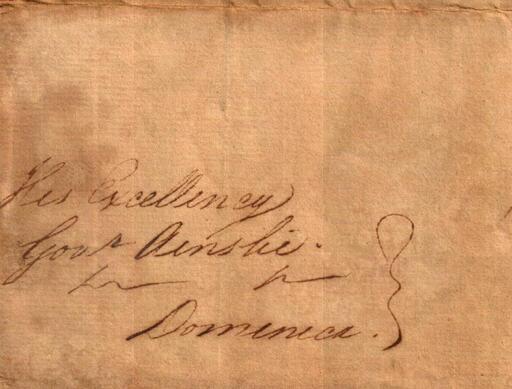 His Excellency
Govr Ainslie.
Dominica.